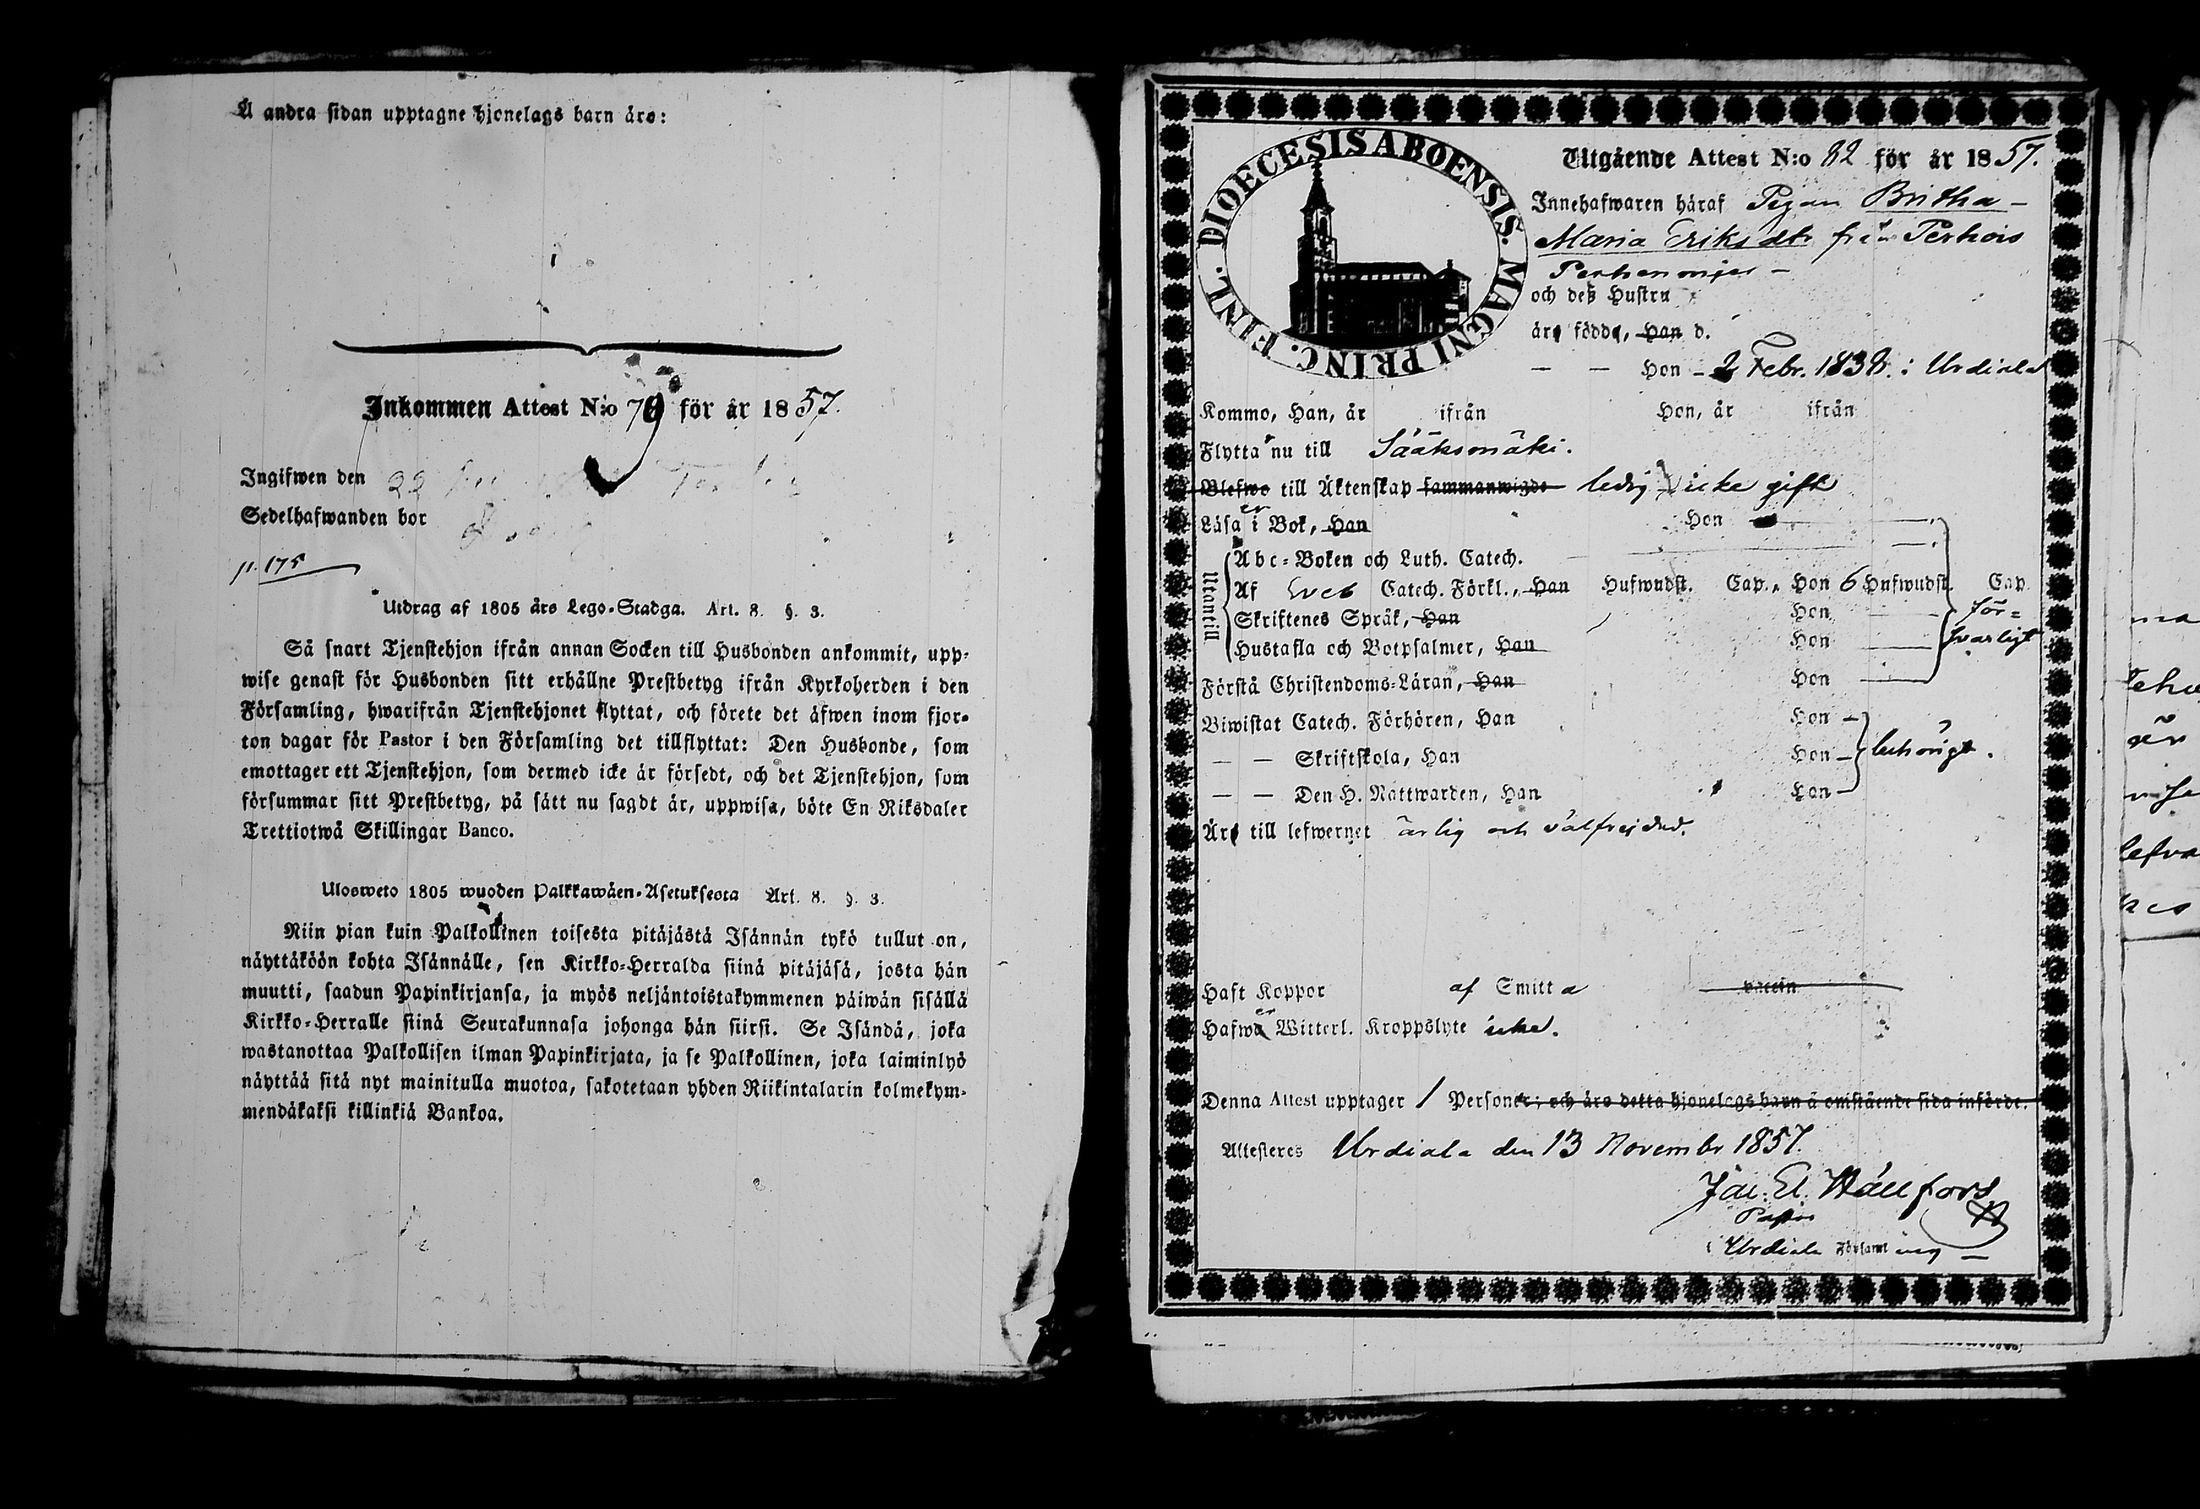 Å andra sidan upptagne hjonelags barn äro:
Inkommen Attest N:o 79 för år 1857.
Ingifwen den 22
Sedelhafwanden bor
p. 175
Utdrag af 1805 års Lego-Stadga. Art. 8. §. 3.
Så snart Tjenstehjon ifrån annan Socken till Husbonden ankommit, upp-
wise genast för Husbonden sitt erhållne Prestbetyg ifrån Kyrkoherden i den
Församling, hwarifrån Tjenstehjonet flyttat, och förete det äfwen inom fjor-
ton dagar för Pastor i den Församling det tillflyttat: Den Husbonde, som
emottager ett Tjenstehjon, som dermed icke är försedt, och det Tjenstehjon, som
försummar sitt Prestbetyg, på sätt nu sagdt är, uppwisa, böte En Riksdaler
Trettiotwå Skillingar Banco.
Ulosweto 1805 wuoden Palkkawäen-Asetuksesta Art. 8. §. 3.
Niin pian kuin Palkollinen toisesta pitäjästä Isännän tykö tullut on,
näyttäköön kohta Isännälle, sen Kirkko-Herralda siinä pitäjäsä, josta hän
muutti, saadun Papinkirjansa, ja myös neljäntoistakymmenen päiwän sisällä
Kirkko-Herralle siinä Seurakunnasa johonga hän siirsi. Se Isändä, joka
wastanottaa Palkollisen ilman Papinkirjata, ja se Palkollinen, joka laiminlyö
näyttää sitä nyt mainitulla muotoa, sakotetaan yhden Riikintalarin kolmekym-
mendäkaksi killinkiä Bankoa.
DIOECESIS ABOENSIS. MAGNI PRINC. FINL.
Utgående Attest N:o 82 för år 1857.
Innehafwaren häraf Pigan Britha
Maria Eriksdtr från Perhois
och deß Hustru
äro födde, Han d.
— — Hon - 2 Febr. 1838. i Urdiala
Kommo, Han, år ifrån Hon, år ifrån
Flytta nu till Sääksmäki.
Blefwo till Äktenskap sammanwigde ledig icke gift
Läsa er i Bok, Han Hon
Utantill
Abc-Boken och Luth. Catech.
Af Sveb Catech. Förkl., Han Hufwudst. Cap., Hon 6 Hufwudst. Cap.
Skriftenes Språk, Han Hon för=
Hustafla och Botpsalmer, Han Hon svarligt
Förstå Christendoms-Läran, Han Hon
Biwistat Catech. Förhören, Han Hon
— — Skriftskola, Han Hon behörigt.
— — Den H. Nattwarden, Han Hon
Äro till lefwernet ärlig och välfrejdad.
Haft Koppor af Smitta vaccin
Hafwa er Witterl. Kroppslyte icke.
Denna Attest upptager 1 Personer; och äro detta hjonelags barn å omstående sida införde.
Attesteres Urdiala den 13 November 1857.
Wällfors
Pastor
i Urdiala Församling